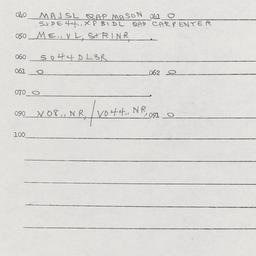 040 MAJSL RAP MASON 041 0
SIDE44.. XPBIDL RAP CARPENTER
050 ME..VL, StRINR
060 5044DL3R
061 0 062 0
070 0
090 V08.. NR, / V044.. NR, 091 0
100